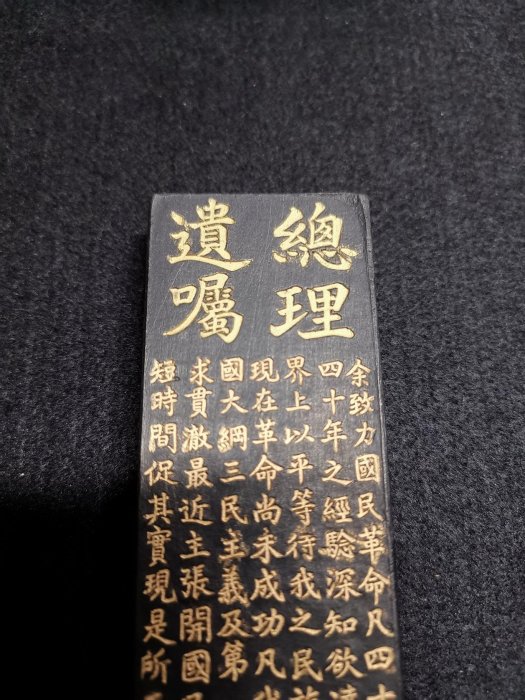 總理
遺囑
余致力國民革命凡四
四十年之經驗深知欲
界上以平等待我之民
現在革命尚未成功凡
國大綱三民主義及第
求貫澈最近主張開國
短時間促其實現是所